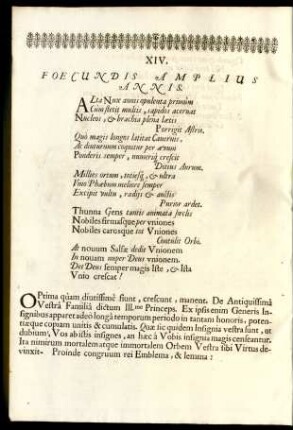 XIV.
FOECUNDIS AMPLIUS
ANNIS.
ALta Nox annis opulenta primùm
Cùm stetit multis, rapidos acervat
Nucleos, & brachia plena lætis
Porrigit Astris.
Quò magis longùm latitat Cavernis,
Ac diuturnum coquitur per ævum
Ponderis semper, numeriq; crescit
Ditius Aurum.
Millies ortum, totiesq; & ultra
Vivo Phœbum meliore semper
Excipit vultu, radijs & auctis
Purior ardet.
Thunna Gens tantis animata sæclis
Nobiles firmasque per vniones
Nobiles caresque tot Vniones
Contulit Orbi.
At novum Salsæ dedit Vnionem
In novam nuper Deus vnionem.
Det Deus semper magis Iste, & Ista
Vnio crescat!
OPtima quàm diutissimè fiunt, crescunt, manent. De Antiquissimâ
Vestrâ Familiâ dictum Ill.me Princeps. Ex ipsis enim Generis In-
signibus apparet adeò longâ temporum periodo in tantam honoris, poten-
tiæque copiam unitis & cumulatis. Quæ sic quidem Insignia vestra sunt, ut
dubium, Vos ab istis insignes, an hæc à Vobis insignia magis censeantur.
Ita nimirum mortalem atque immortalem Orbem Vestra sibi Virtus de-
vinxit. Proinde congruum rei Emblema, & lemma: